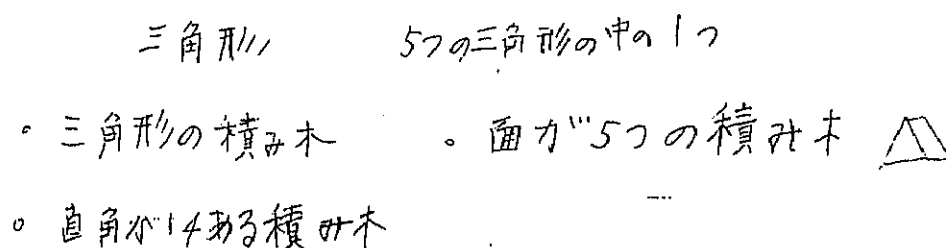 三角形 5つの三角形の中の1つ
。三角形の積み木 。面が5つの積み木
。直角が14ある積み木